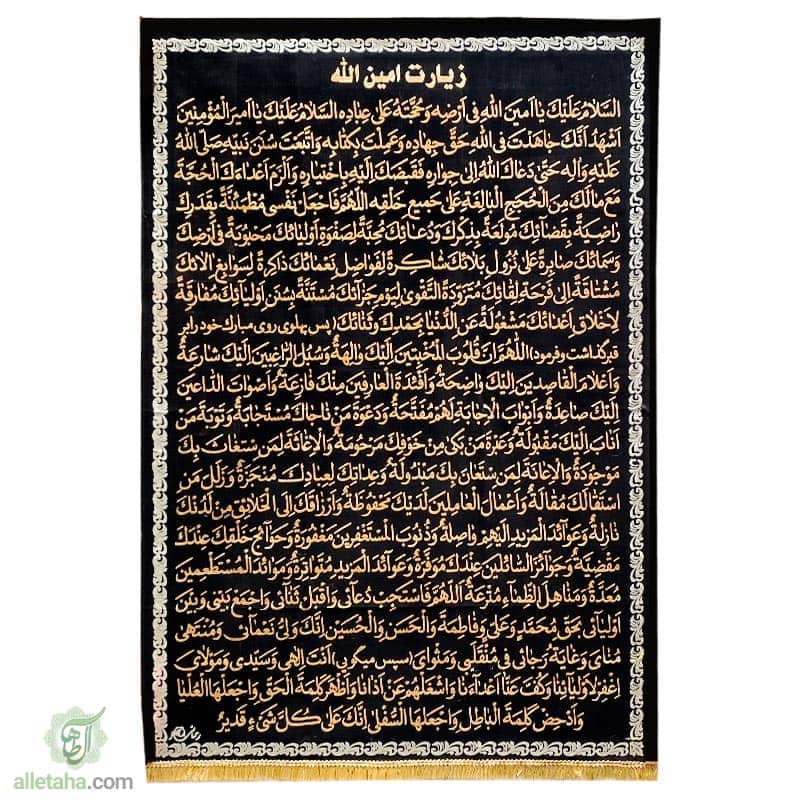 زیارت امین الله
السَّلامُ عَلَیْكَ یا اَمینَ اللهِ فی اَرْضِهِ وَحُجَّتَهُ عَلی عِبادِهِ السَّلامُ عَلَیْكَ یا اَمیرَ الْمُؤْمِنینَ
اَشْهَدُ اَنَّكَ جاهَدْتَ فِی اللهِ حَقَّ جِهادِهِ وَعَمِلْتَ بِكِتابِهِ وَاتَّبَعْتَ سُنَنَ نَبِیِّهِ صَلَّی اللهُ
عَلَیْهِ وَآلِهِ حَتّی دَعاكَ اللهُ اِلی جِوارِهِ فَقَبَضَكَ اِلَیْهِ بِاخْتِیارِهِ وَاَلْزَمَ اَعْداءَكَ الْحُجَّةَ
مَعَ مالَكَ مِنَ الْحُجَجِ الْبالِغَةِ عَلی جَمیعِ خَلْقِهِ اَللّهُمَّ فَاجْعَلْ نَفْسی مُطْمَئِنَّةً بِقَدَرِكَ
راضِیَةً بِقَضآئِكَ مُولَعَةً بِذِكْرِكَ وَدُعآئِكَ مُحِبَّةً لِصَفْوَةِ اَوْلِیآئِكَ مَحْبُوبَةً فی اَرْضِكَ
وَسَمآئِكَ صابِرَةً عَلی نُزُولِ بَلائِكَ شاكِرَةً لِفَواضِلِ نَعْمائِكَ ذاكِرَةً لِسَوابِغِ آلائِكَ
مُشْتاقَةً اِلی فَرْحَةِ لِقائِكَ مُتَزَوِّدَةً التَّقْوی لِیَوْمِ جَزآئِكَ مُسْتَنَّةً بِسُنَنِ اَوْلِیآئِكَ مُفارِقَةً
لِاَخْلاقِ اَعْدائِكَ مَشْغُولَةً عَنِ الدُّنْیا بِحَمْدِكَ وَثَنائِكَ (پس پهلوی روی مبارك خود را بر
قبر گذاشت و فرمود) اَللّهُمَّ اِنَّ قُلُوبَ الْمُخْبِتینَ اِلَیْكَ والِهَةٌ وَسُبُلَ الرّاغِبینَ اِلَیْكَ شارِعَةٌ
وَاَعْلامَ الْقاصِدینَ اِلَیْكَ واضِحَةٌ وَاَفْئِدَةَ الْعارِفینَ مِنْكَ فازِعَةٌ وَاَصْواتَ الدّاعینَ
اِلَیْكَ صاعِدَةٌ وَاَبْوابَ الْاِجابَةِ لَهُمْ مُفَتَّحَةٌ وَدَعْوَةَ مَنْ ناجاكَ مُسْتَجابَةٌ وَتَوْبَةَ مَنْ
اَنابَ اِلَیْكَ مَقْبُولَةٌ وَعَبْرَةَ مَنْ بَكی مِنْ خَوْفِكَ مَرْحُومَةٌ وَالْاِغاثَةَ لِمَنِ سْتَغاثَ بِكَ
مَوْجُودَةٌ وَالْاِعانَةَ لِمَنِ سْتَعانَ بِكَ مَبْذُولَةٌ وَعِداتِكَ لِعِبادِكَ مُنْجَزَةٌ وَزَلَلَ مَنِ
اسْتَقالَكَ مُقالَةٌ وَاَعْمالَ الْعامِلینَ لَدَیْكَ مَحْفُوظَةٌ وَاَرْزاقَكَ اِلَی الْخَلائِقِ مِنْ لَدُنْكَ
نازِلَةٌ وَعَوآئِدَ الْمَزیدِ اِلَیْهِمْ واصِلَةٌ وَذُنُوبَ الْمُسْتَغْفِرینَ مَغْفُورَةٌ وَحَوآئِجَ خَلْقِكَ عِنْدَكَ
مَقْضِیَّةٌ وَجَوآئِزَ السّآئِلینَ عِنْدَكَ مُوَفَّرَةٌ وَعَوآئِدَ الْمَزیدِ مُتَواتِرَةٌ وَمَوآئِدَ الْمُسْتَطْعِمینَ
مُعَدَّةٌ وَمَناهِلَ الظِّمآءِ مُتْرَعَةٌ اَللّهُمَّ فَاسْتَجِبْ دُعآئی وَاقْبَلْ ثَنآئی وَاجْمَعْ بَیْنی وَبَیْنَ
اَوْلِیآئی بِحَقِّ مُحَمَّدٍ وَعَلِیٍّ وَفاطِمَةَ وَالْحَسَنِ وَالْحُسَیْنِ اِنَّكَ وَلِیُّ نَعْمآئی وَمُنْتَهی
مُنایَ وَغایَةُ رَجائی فی مُنْقَلَبی وَمَثْوایَ (سپس میگویی) اَنْتَ اِلهی وَسَیِّدی وَمَوْلایَ
اِغْفِرْ لِاَوْلِیآئِنا وَكُفَّ عَنّا اَعْدآءَنا وَاشْغَلْهُمْ عَنْ اَذانا وَاَظْهِرْ كَلِمَةَ الْحَقِّ وَاجْعَلْهَا الْعُلْیا
وَاَدْحِضْ كَلِمَةَ الْباطِلِ وَاجْعَلْهَا السُّفْلی اِنَّكَ عَلی كُلِّ شَیْءٍ قَدیرٌ
alletaha.com